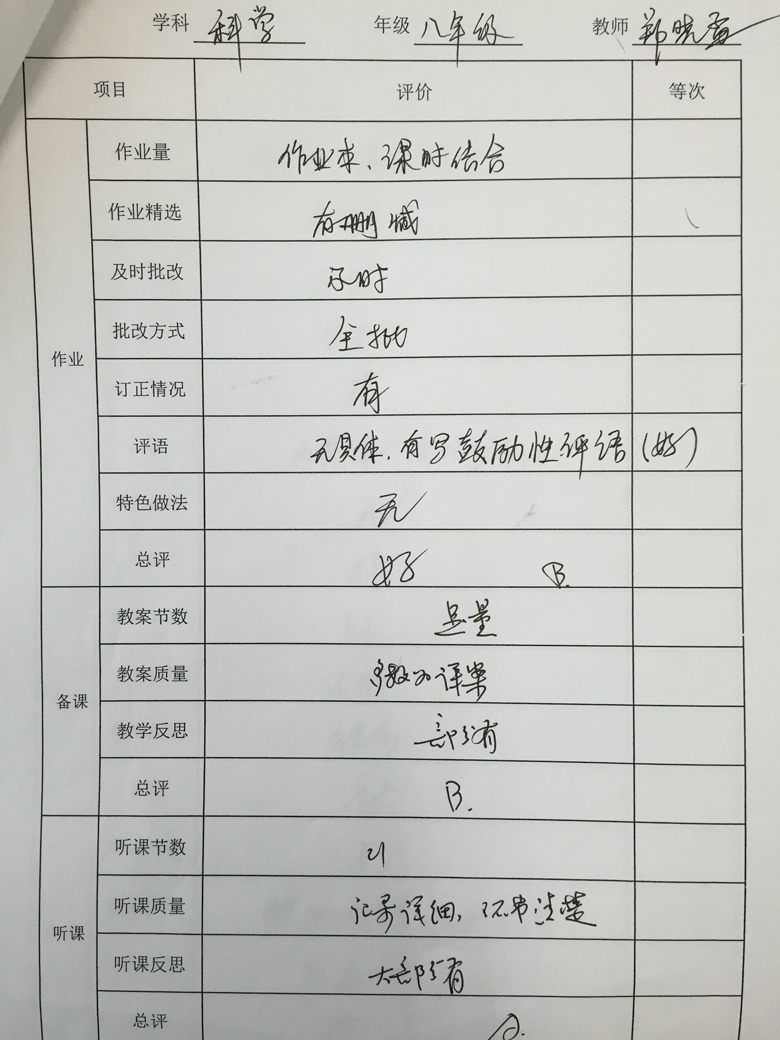 学科 科学 年级 八年级 教师 郑晓
项目 评价 等次
作业
作业量 作业本、课时结合
作业精选 有删减
及时批改 及时
批改方式 全批
订正情况 有
评语 无具体，有写鼓励性评语（好）
特色做法 无
总评 好 B.
备课
教案节数 足量
教案质量 多数为详案
教学反思 部分有
总评 B.
听课
听课节数 21
听课质量 记录详细，环节清楚
听课反思 大部分有
总评